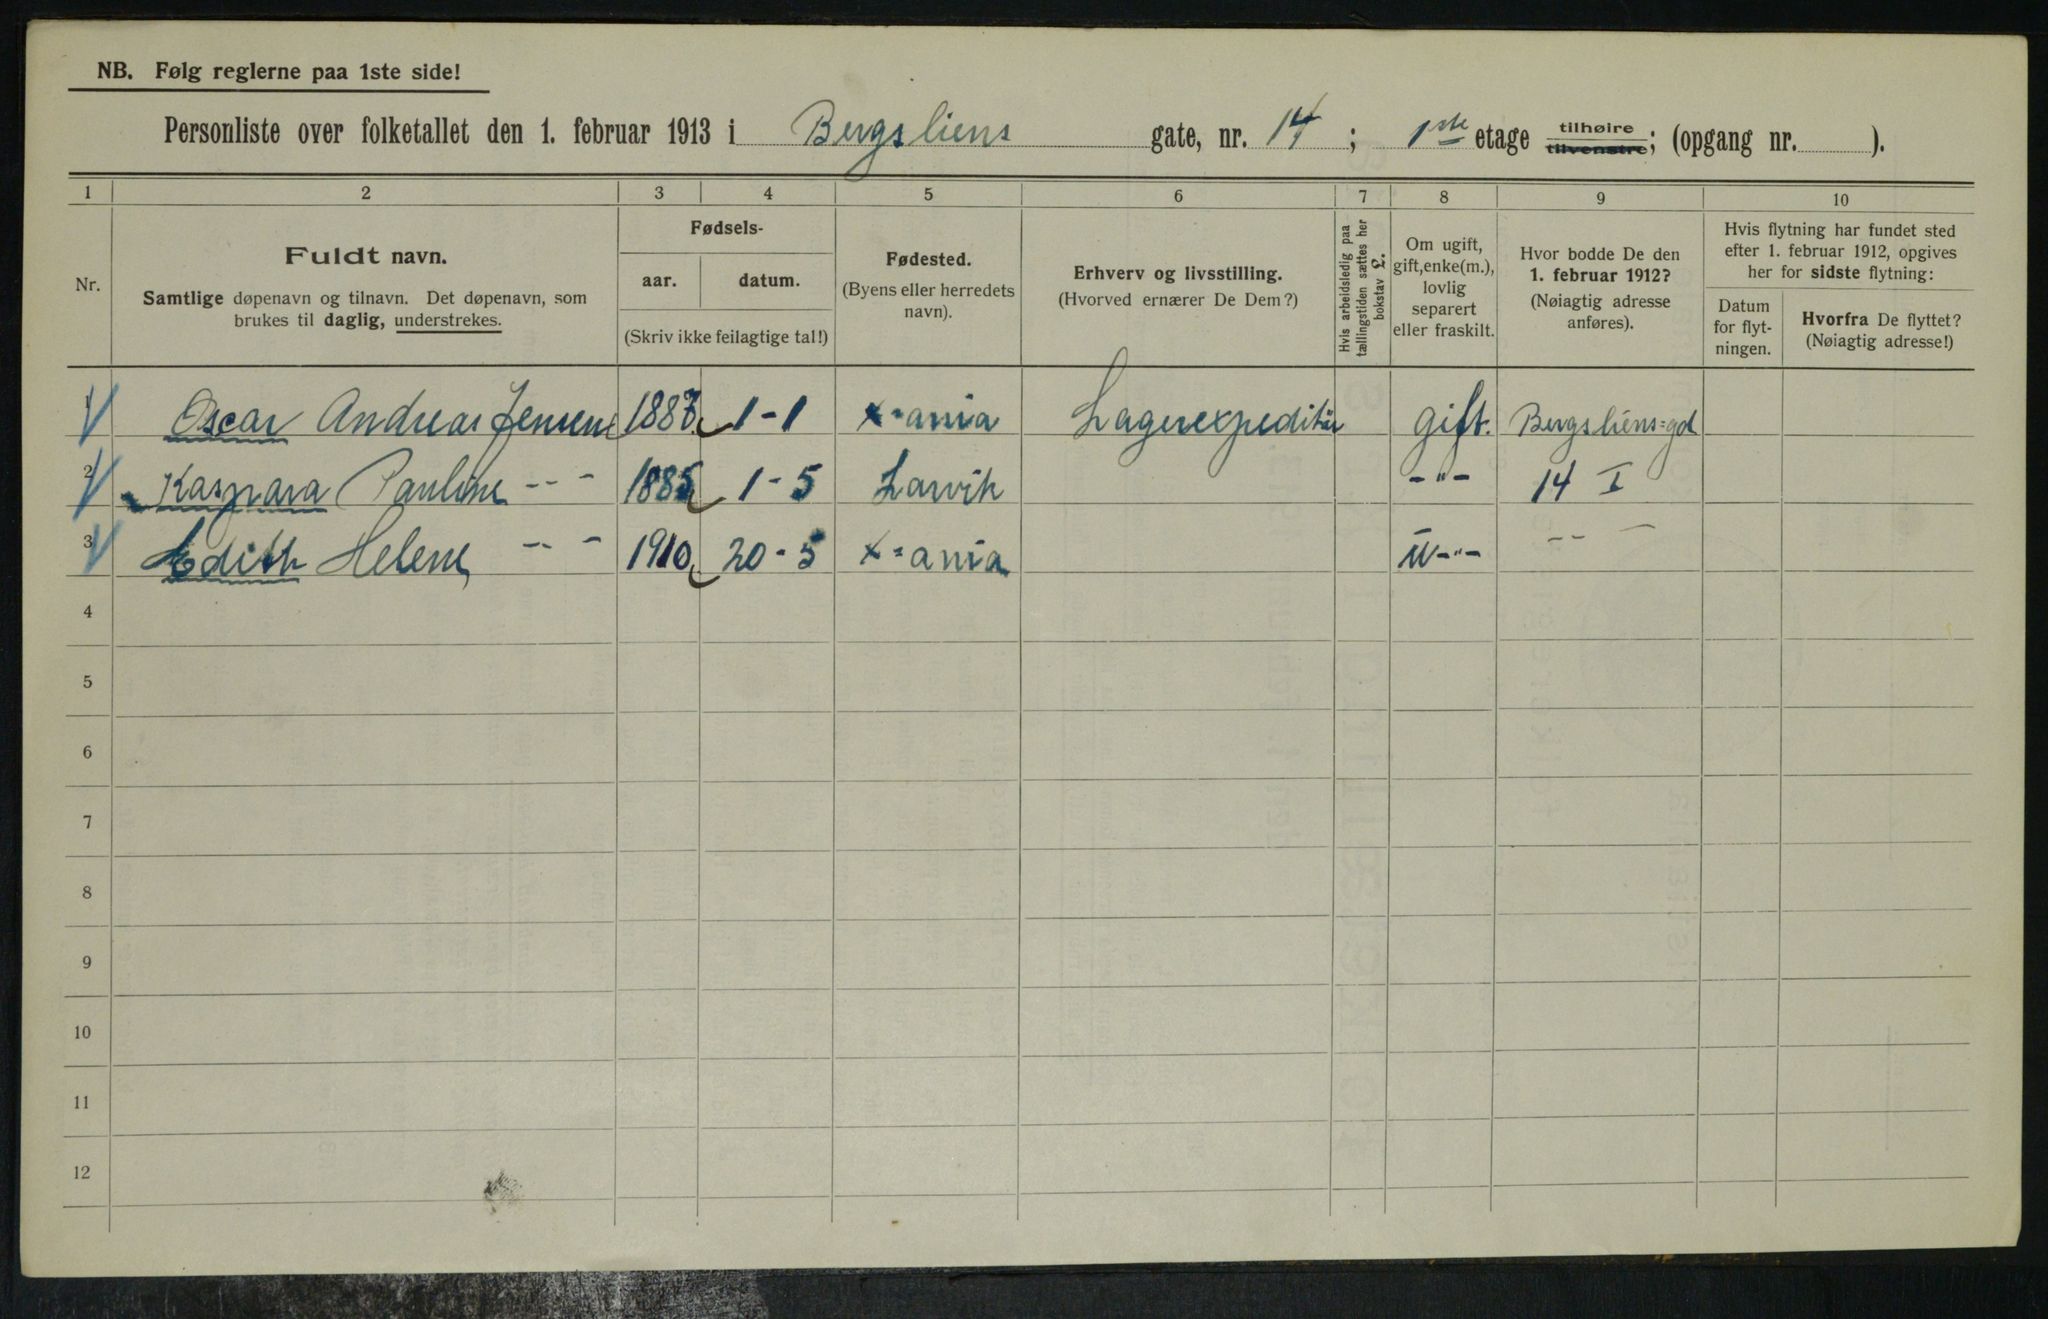 NB. Følg reglerne paa 1ste side!
Personliste over folketallet den 1. februar 1913 i Bergsliens gate, nr. 14 ; 1ste etage tilhøire tilvenstre; (opgang nr. ).
1 2 3 4 5 6 7 8 9 10
Nr.
Fuldt navn.
Samtlige døpenavn og tilnavn. Det døpenavn, som
brukes til daglig, understrekes.
Fødsels-
aar. datum.
(Skriv ikke feilagtige tal!)
Fødested.
(Byens eller herredets
navn).
Erhverv og livsstilling.
(Hvorved ernærer De Dem?)
Hvis arbeidsledig paa
tællingstiden sættes her
bokstav L.
Om ugift,
gift, enke(m.),
lovlig
separert
eller fraskilt.
Hvor bodde De den
1. februar 1912?
(Nøiagtig adresse
anføres).
Hvis flytning har fundet sted
efter 1. februar 1912, opgives
her for sidste flytning:
Datum
for flyt-
ningen.
Hvorfra De flyttet?
(Nøiagtig adresse!)
1 Oscar Andreas Jensen 1887 1-1 X=ania Lagerexpeditør gift. Bergsliens=gd
2 Kaspara Pauline -- - 1885 1-5 Larvik -"- 14 I
3 Edith Helene -- - 1910 20-5 X=ania u-"- -- -
4
5
6
7
8
9
10
11
12